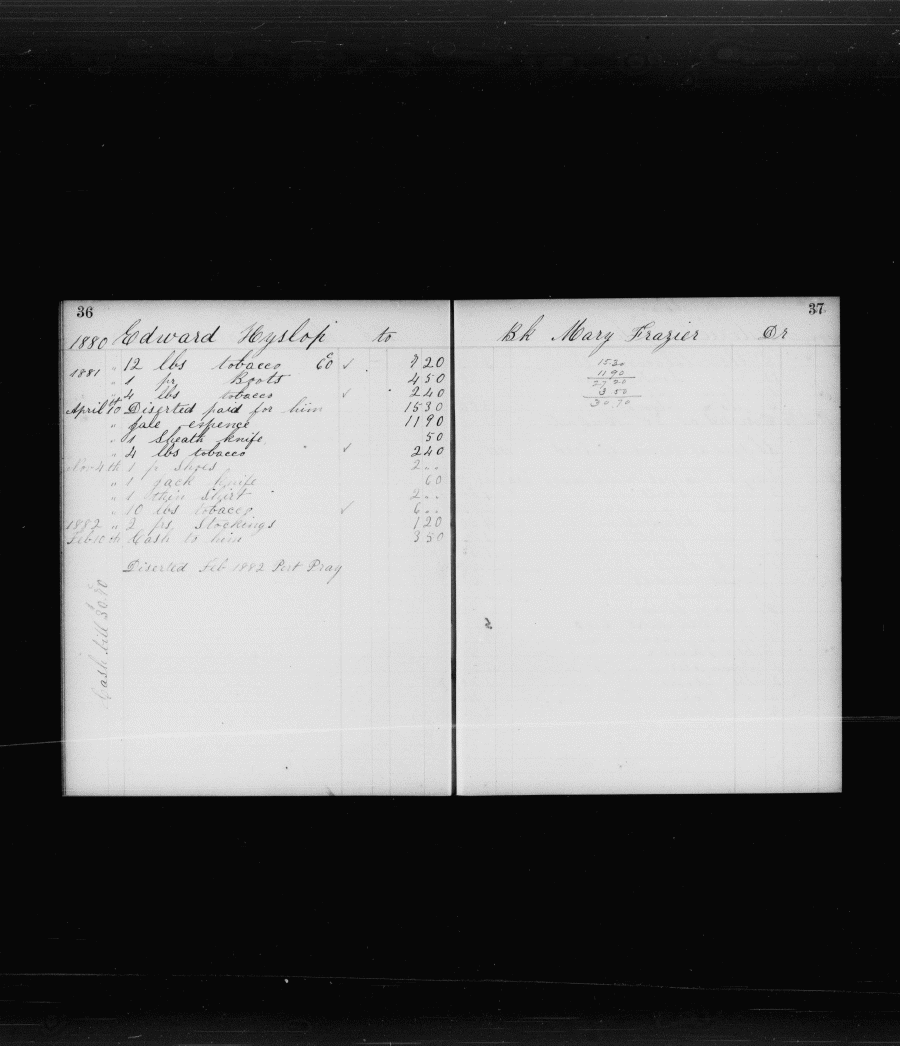 36
1880 Edward Hyslop to
1881 " 12 lbs tobacco 60 ✓ 7 20
" 1 pr Boots 4 50
" 4 lbs tobacco ✓ 2 40
April 10th Diserted paid for him 15 30
" Jale expence 11 90
" 1 sheath knife 50
" 4 lbs tobacco ✓ 2 40
Nov 4th 1 pr shoes 2 ..
" 1 jack knife 60
" 1 thin shirt 2 ..
" 10 lbs tobacco ✓ 6 ..
1882 " 2 prs. stockings 1 20
Feb 10th Cash to him 3 50
Diserted Feb 1882 Port Pray
Cash bill 30.70
37
Bk Mary Frazier Dr
15 30
11 90
27 20
3 50
30 70